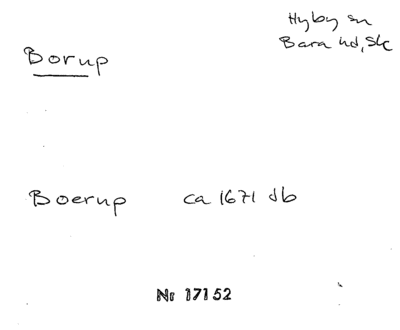 Hyby sn
Bara hd, Sk
Borup
Boerup ca 1671 db
Nr 17152